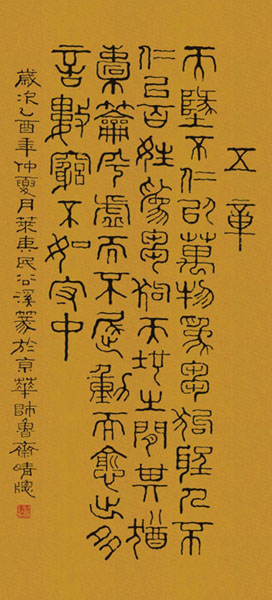 五章
天墬不仁以萬物為芻狗聖人不
仁以百姓為芻狗天地之間其猶
橐籥乎虛而不屈動而愈出多
言數窮不如守中
歲次乙酉年仲夏月萊東民谷溪篆於京華師魯齋晴窗